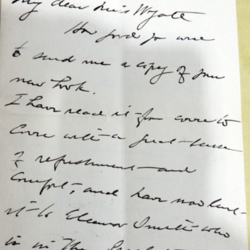 My dear Miss Wyatt
How good you were
to send me a copy of your
new book.
I have read it from cover to
cover with a great sense
of refreshment and
comfort and have now lent
it to Eleanor
is in the